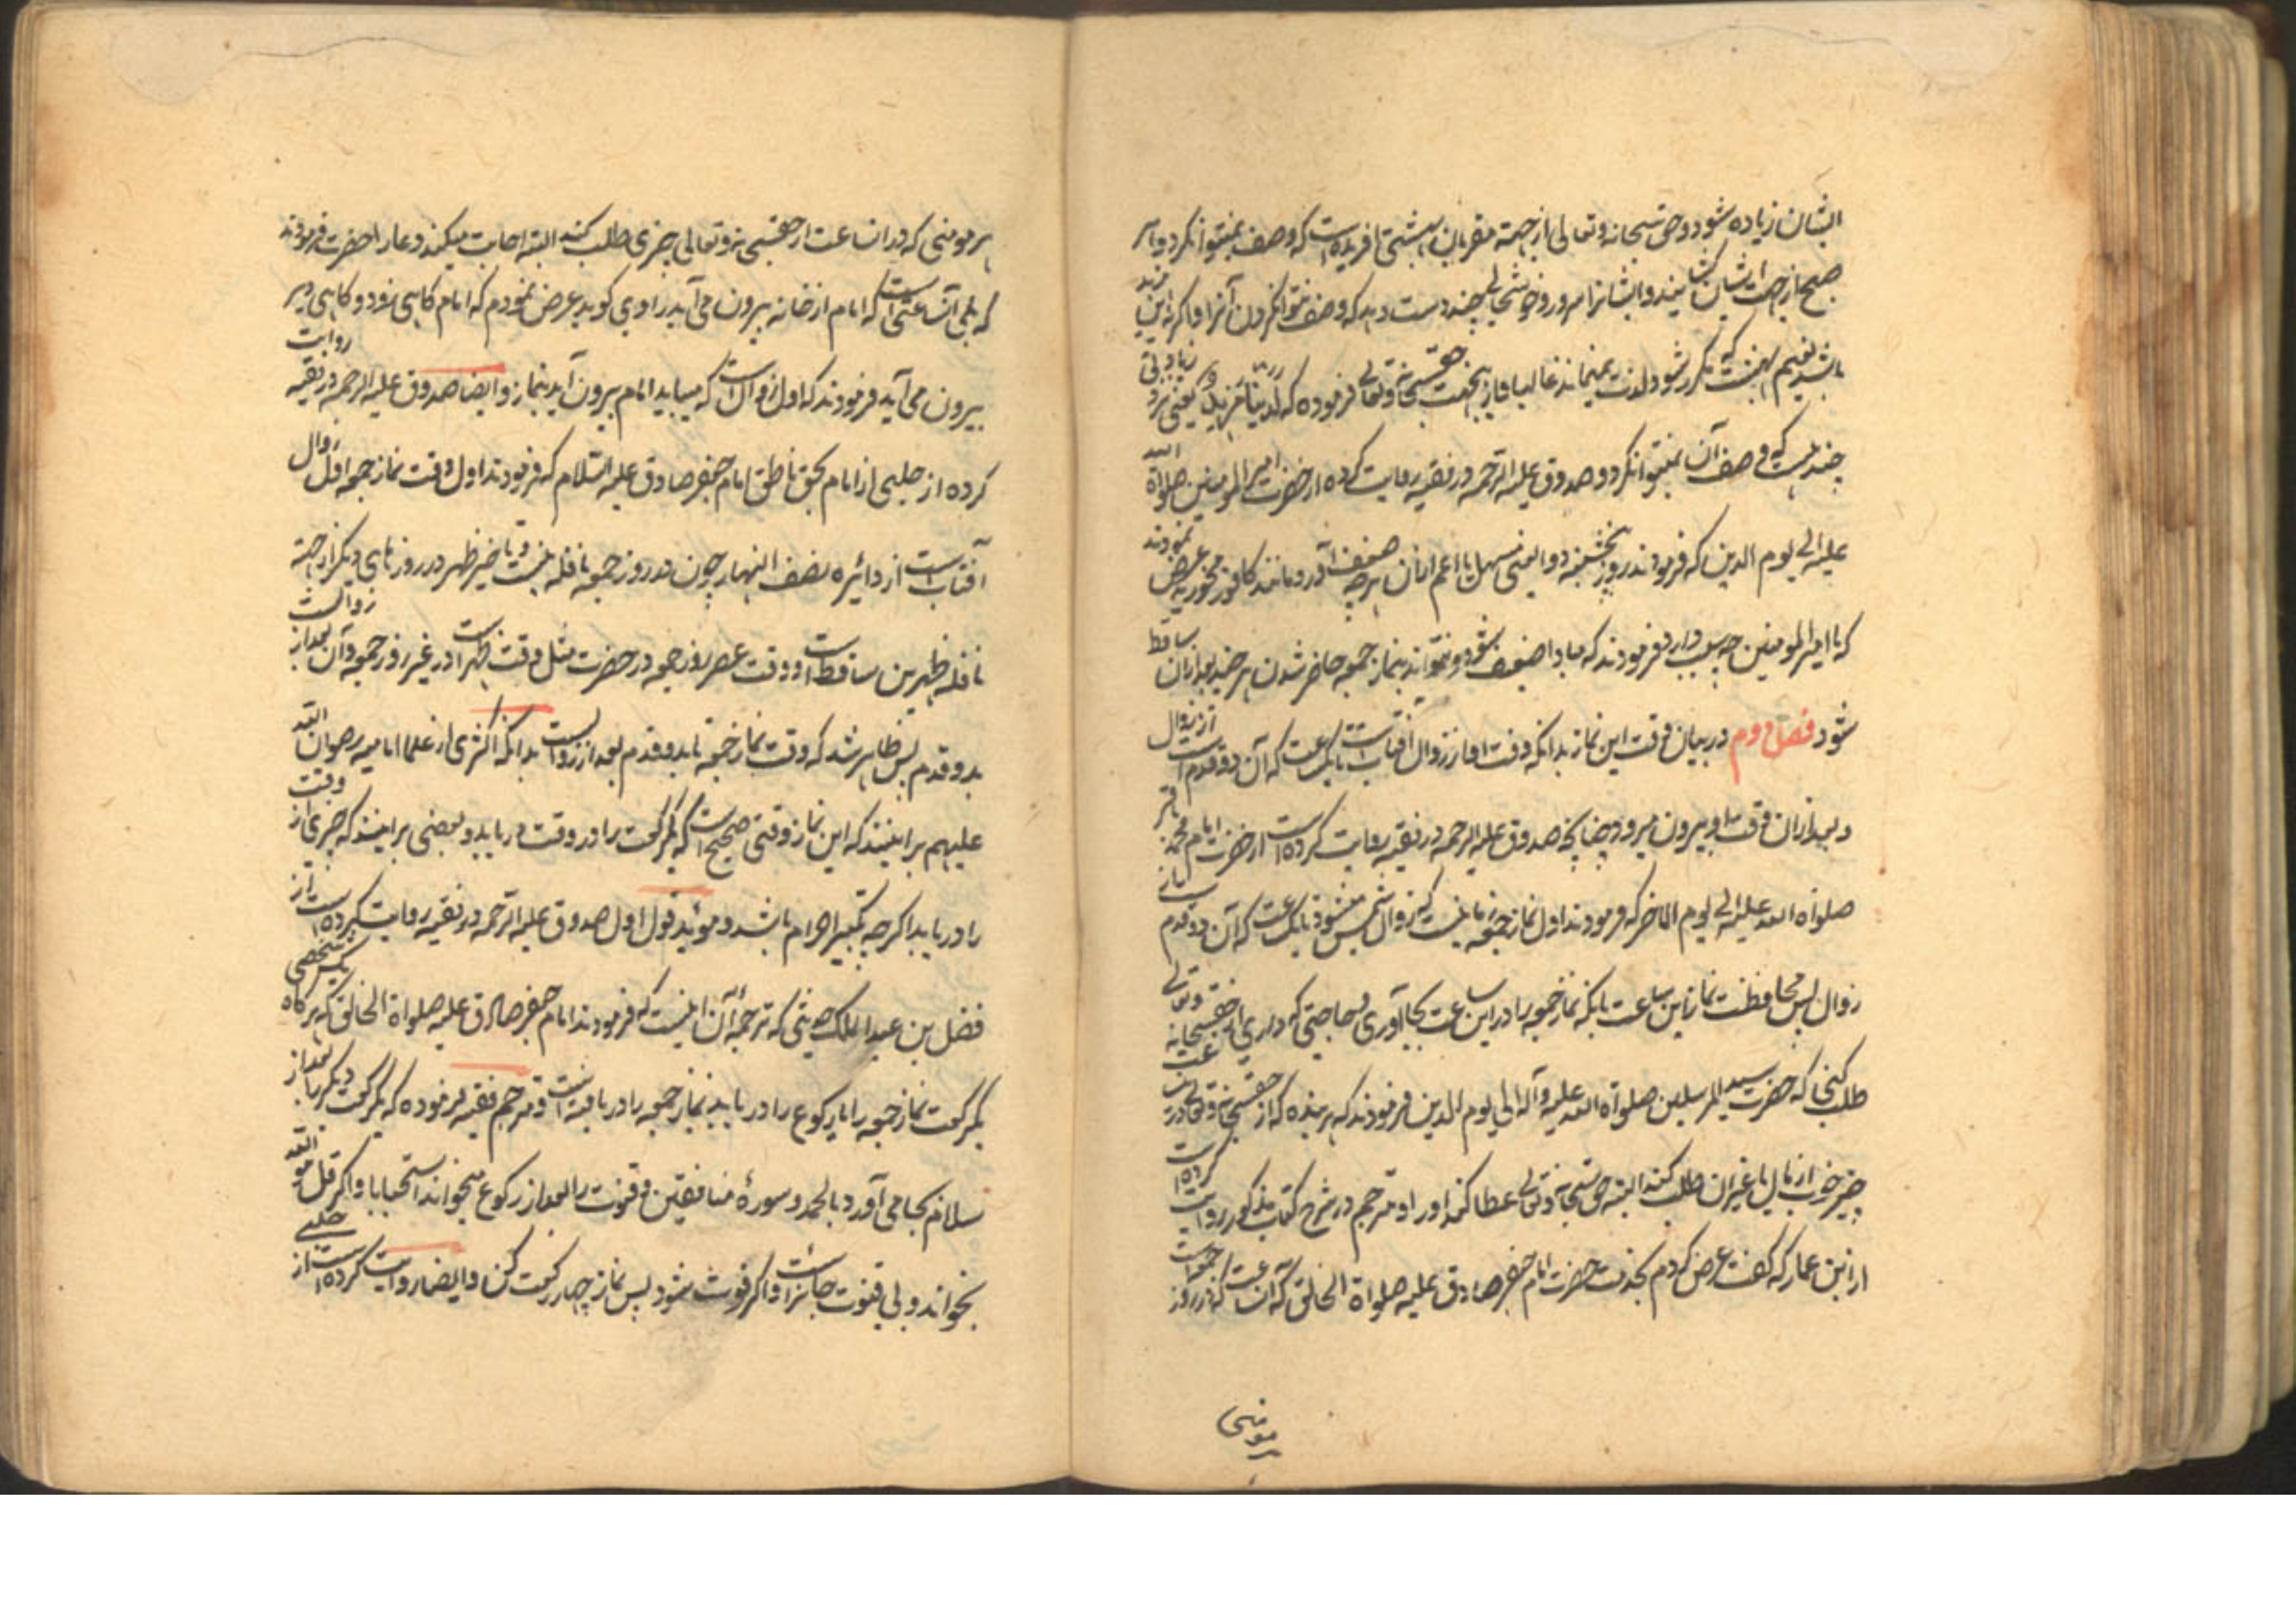 ایشان زیاده شود و حق سبحانه و تعالی از جهة مقربان بهشتی آفریده است که وصف نمیتوان کرد و هر
صبح از جهت ایشان و ایشانرا سرور و خوشحالی چند دست دهد که وصف نتوان کردن آنرا و اگر نه این مزید
باشد نعیم بهشت که مکرر شود لذت نمیماند غالبا و از اینجهت حقسبحانه و تعالی فرموده که لدینا مزید یعنی نزد زیادتی
چند هست که وصف آن نمیتوان کرد و صدوق علیه الرحمه در فقیه روایت کرده از حضرت امیر المومنین صلواة الله
علیه الی یوم الدین که فرمودند روز پنجشنبه دوا یعنی مسهل یا اعم از آن هر چه ضعف آورد مانند کافور مخورید عرض نمودند
که یا امیر المومنین چه سبب دارد فرمودند که مبادا ضعیف شود و نتواند بنماز جمعه حاضر شدن هر چند بعد از آن ساقط
شود فصل دوم در بیان وقت این نماز بدانکه وقت او از زوال آفتاب است تا یکساعت که آن دو قدم است از زوال
و بعد از آن وقت او بیرون میرود چنانچه صدوق علیه الرحمه در فقیه روایت کرده است از حضرت امام محمد باقر
صلواة الله علیه الی یوم الاخر که فرمودند اول نماز جمعه ساعتیست که زوال شمس میشود تا یکساعت که آن دو قدم
زوال پس محافظت نما این ساعت بانکه نماز جمعه را در این ساعت بجا آوری و حاجتی که داری از حقسبحانه و تعالی
طلب کنی که حضرت سید المرسلین صلواة الله علیه و آله الی یوم الدین فرمودند که هر بنده که از حقسبحانه و تعالی در این ساعت
چیز خوب از مال یا غیر آن طلب کند البته حق سبحانه و تعالی عطا کند او را و مترجم در شرح کتاب مذکور روایت کرده است
از ابن عمار که گفت عرض کردم بخدمت حضرت امام جعفر صادق علیه صلواة الخالق که آن ساعت که در روز جمعه است
هر مومنی
هر مومنی که در ان ساعت از حقسبحانه و تعالی چیزی طلب کند البته اجابت میکند دعا را حضرت فرمودند
که بلی آن ساعتی است که امام از خانه بیرون می آید راوی گوید عرض نمودم که امام گاهی زود و گاهی دیر
بیرون می آید فرمودند که اول زوال است که میباید امام بیرون آید بنماز و ایضا صدوق علیه الرحمه در فقیه روایت
کرده از حلبی از امام بحق ناطق امام جعفر صادق علیه السلام که فرمودند اول وقت نماز جمعه اول زوال
آفتاب است از دائره نصف النهار چون در روز جمعه نافله نیست و تاخیر ظهر در روزهای دیگر از جهة
نافله ظهرین ساقط است و وقت عصر روز جمعه در حضرت مثل وقت ظهر است در غیر روز جمعه و آن بعد از زوالست
بدو قدم پس ظاهر شد که وقت نماز جمعه تا بدو قدم بعد از زوالست بدانکه اکثری از علما امامیه رضوان الله
علیهم برانینند که این نماز وقتی صحیح است که یکرکعت را در وقت دریابد و بعضی برانینند که جزئی از وقت
را دریابد اگر چه تکبیر احرام باشد و موئید قول اول صدوق علیه الرحمه در فقیه روایت کرده است از
فضل بن عبد الملک حدیثی که ترجمه آن اینست که فرمودند امام جعفر صادق علیه صلواة الخالق که هرگاه شخصی
یکرکعت نماز جمعه را یا رکوع را دریابد نماز جمعه را دریافته است و مترجم فقیه فرموده که یکرکعت دیگر را بعد از
سلام بجا می آورد بالحمد و سورهٔ منافقین و قنوت را بعد از رکوع میخواند استحبابا و اگر قل هو الله
بخواند و بی قنوت جائز است و اگر فوت شود پس نماز چهار رکعت کن و ایضا روایت کرده است از حلبی